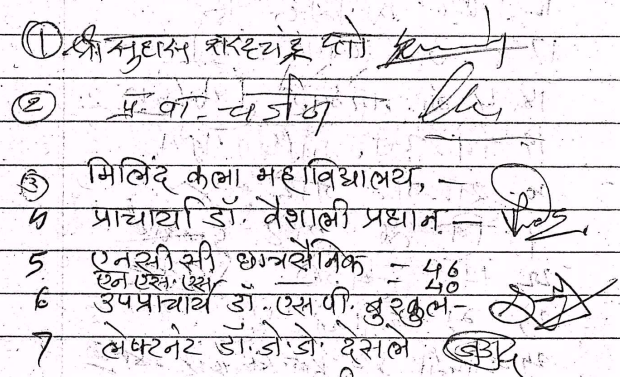 ① श्री सुहास शरदचंद्र
② प्र. वा.
③ मिलिंद कला महाविद्यालय, —
४ प्राचार्या डॉ. वैशाली प्रधान. —
5 एनसीसी छात्रसैनिक - 46
एन.एस.एस. — - 40
6 उपप्राचार्य डॉ. एस.पी. बुरकुल-
7 लेफ्टनंट डॉ. जे. डी. देसले